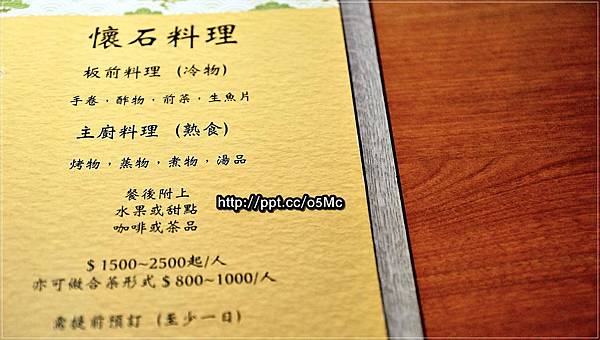 懷石料理
板前料理 (冷物)
手卷，酢物，前菜，生魚片
主廚料理 (熟食)
烤物，蒸物，煮物，湯品
餐後附上
水果或甜點
咖啡或茶品
http://ppt.cc/o5Mc
$ 1500~2500起/人
亦可做合菜形式 $ 800~1000/人
需提前預訂 (至少一日)